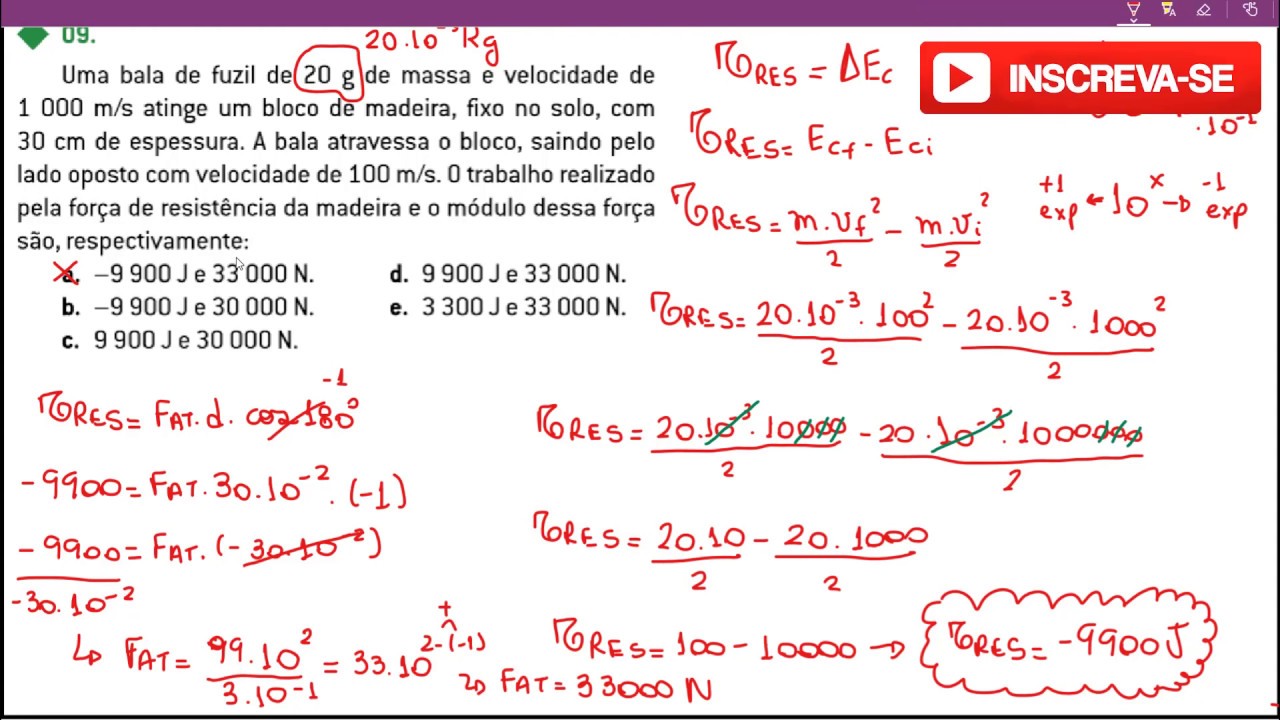 09.
20.10⁻³Kg
Uma bala de fuzil de 20 g de massa e velocidade de
1 000 m/s atinge um bloco de madeira, fixo no solo, com
30 cm de espessura. A bala atravessa o bloco, saindo pelo
lado oposto com velocidade de 100 m/s. O trabalho realizado
pela força de resistência da madeira e o módulo dessa força
são, respectivamente:
a. –9 900 J e 33 000 N.
b. –9 900 J e 30 000 N.
c. 9 900 J e 30 000 N.
d. 9 900 J e 33 000 N.
e. 3 300 J e 33 000 N.
τRES = ΔEc
INSCREVA-SE
.10⁻¹
τRES = Ecf - Eci
+1 exp ← 10ˣ → -1 exp
τRES = m.vf²/2 - m.vi²/2
τRES = 20.10⁻³.100²/2 - 20.10⁻³.1000²/2
τRES = 20.10⁻³.10000/2 - 20.10⁻³.1000000/2
τRES = 20.10/2 - 20.1000/2
τRES = 100 - 10000 → τRES = -9900J
-1
τRES = FAT.d.cos180°
-9900 = FAT.30.10⁻².(-1)
-9900 = FAT.(-30.10⁻²)
-30.10⁻²
↳ FAT = 99.10²/3.10⁻¹ = 33.10²⁻⁽⁻¹⁾
+
↳ FAT = 33000 N